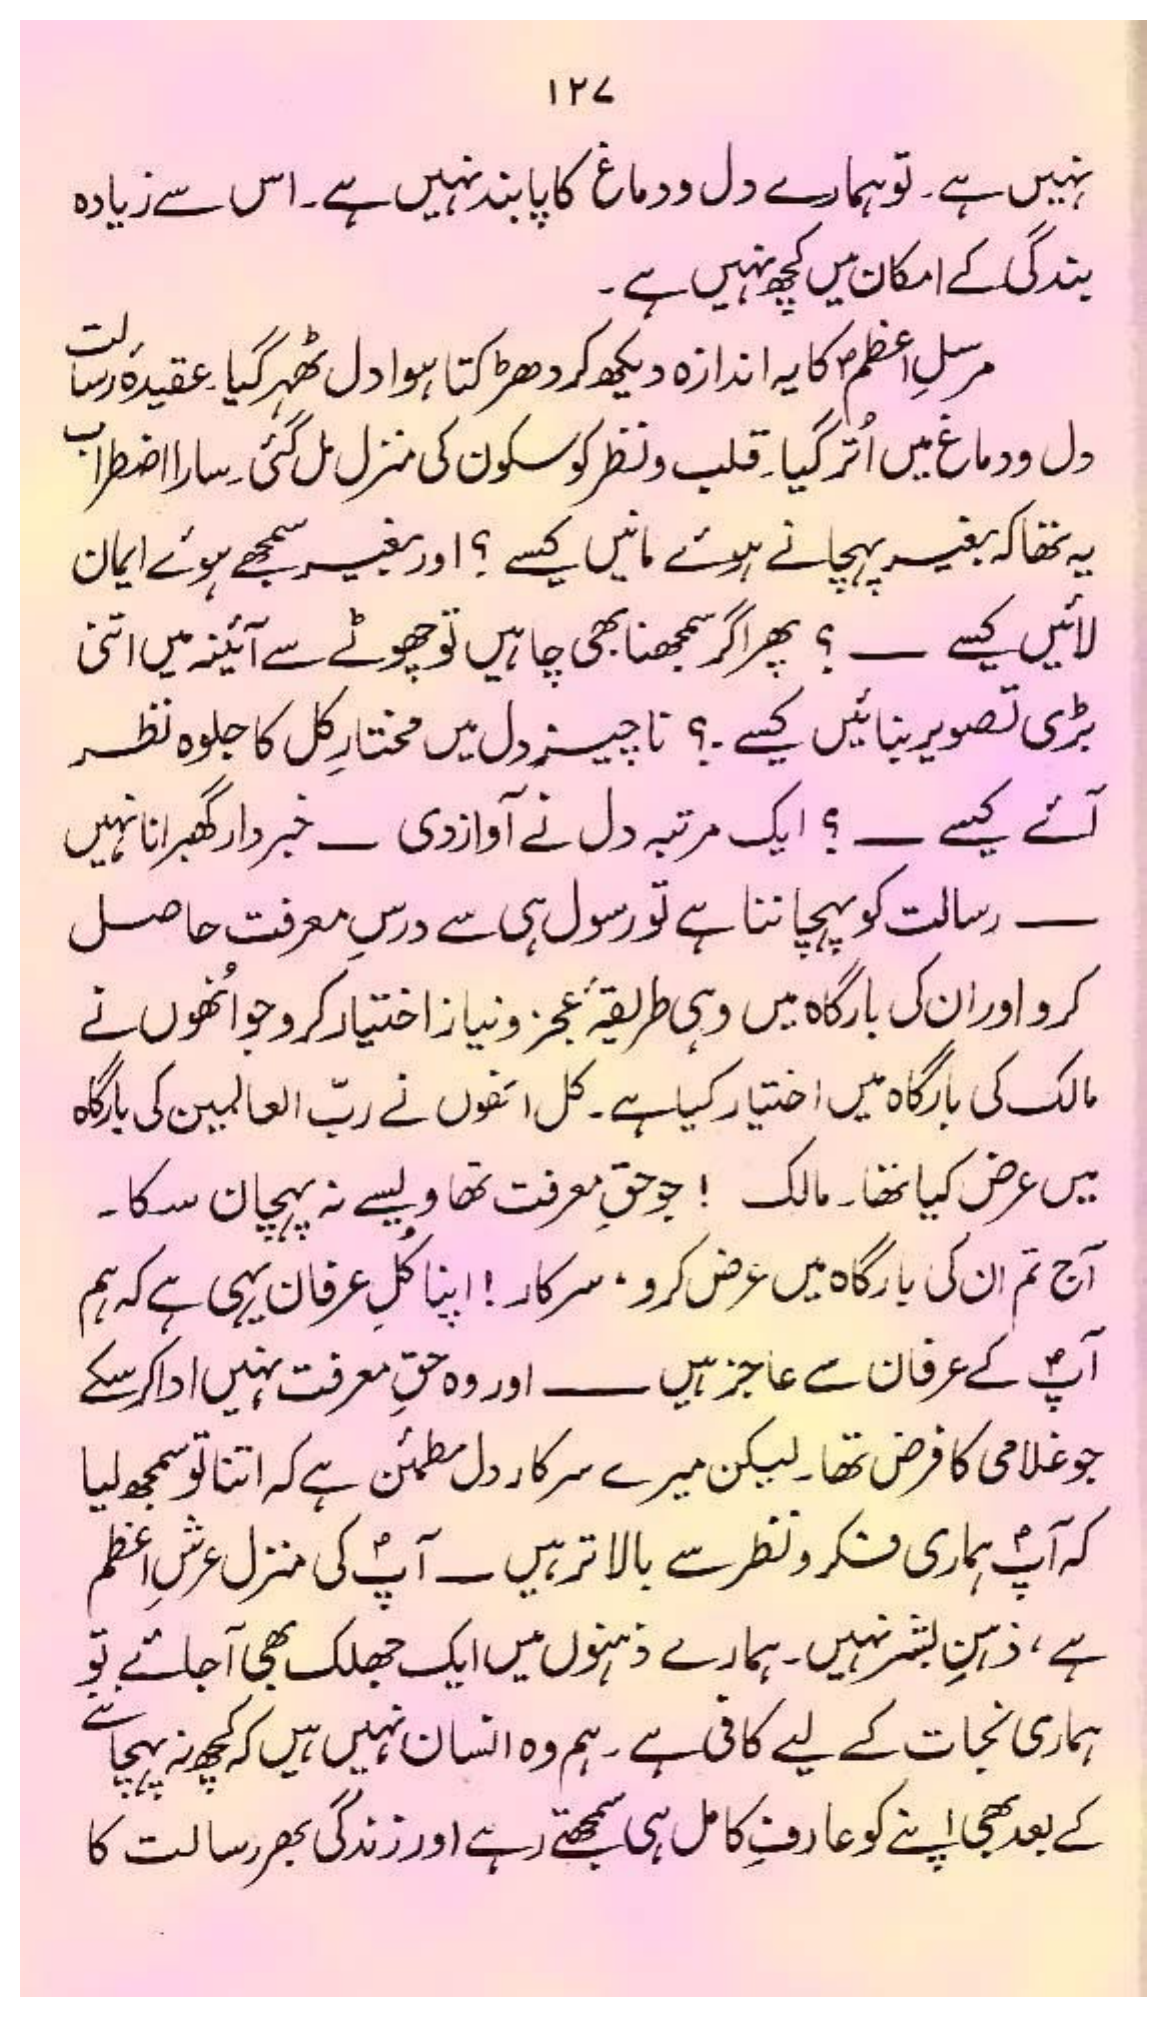 ۱۲۷
نہیں ہے۔ تو ہمارے دل و دماغ کا پابند نہیں ہے۔ اس سے زیادہ
بندگی کے امکان میں کچھ نہیں ہے۔
مرسلِ اعظمؐ کا یہ اندازہ دیکھ کر دھڑکتا ہوا دل ٹھہر گیا۔ عقیدۂ رسالت
دل و دماغ میں اُتر گیا۔ قلب و نظر کو سکون کی منزل مل گئی۔ سارا اضطراب
یہ تھا کہ بغیر پہچانے ہوئے مانیں کیسے ؟ اور بغیر سمجھے ہوئے ایمان
لائیں کیسے ــــ ؟ پھر اگر سمجھنا بھی چاہیں تو چھوٹے سے آئینہ میں اتنی
بڑی تصویر بنائیں کیسے۔؟ ناچیز دل میں مختارِ کل کا جلوہ نظر
آئے کیسے ــــ ؟ ایک مرتبہ دل نے آواز دی ــــ خبردار گھبرانا نہیں
ــــ رسالت کو پہچاننا ہے تو رسول ہی سے درسِ معرفت حاصل
کرو اور ان کی بارگاہ میں وہی طریقۂ عجز و نیاز اختیار کرو جو اُنھوں نے
مالک کی بارگاہ میں اختیار کیا ہے۔ کل انھوں نے ربّ العالمین کی بارگاہ
میں عرض کیا تھا۔ مالک ! جو حقِ معرفت تھا ویسے نہ پہچان سکا۔
آج تم ان کی بارگاہ میں عرض کرو، سرکار ! اپنا کُل عرفان یہی ہے کہ ہم
آپؐ کے عرفان سے عاجز ہیں ــــ اور وہ حقِ معرفت نہیں ادا کر سکے
جو غلامی کا فرض تھا۔ لیکن میرے سرکار دل مطمئن ہے کہ اتنا تو سمجھ لیا
کہ آپؐ ہماری فکر و نظر سے بالاتر ہیں ــــ آپؐ کی منزل عرشِ اعظم
ہے، ذہنِ بشر نہیں۔ ہمارے ذہنوں میں ایک جھلک بھی آجائے تو
ہماری نجات کے لیے کافی ہے۔ ہم وہ انسان نہیں ہیں کہ کچھ نہ پہچاننے
کے بعد بھی اپنے کو عارفِ کامل ہی سمجھتے رہے اور زندگی بھر رسالت کا